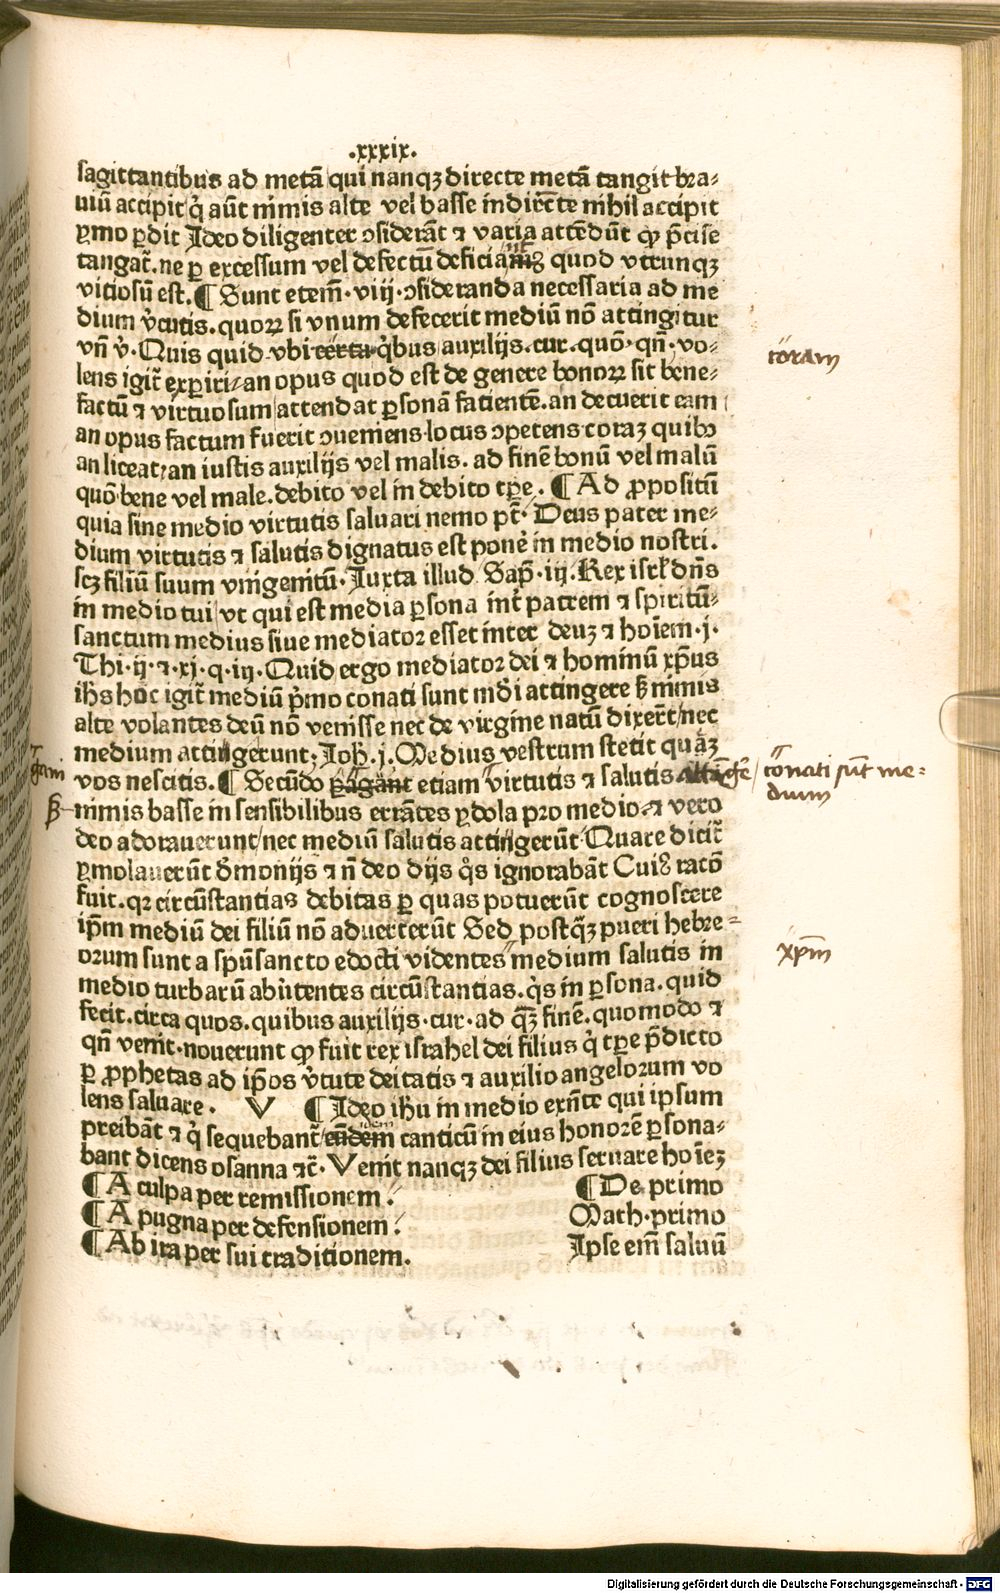 .xxxix.
sagittantibus ad metā qui nanqꝫ directe metā tangit bra⸗
uiū accipit q̇ aūt nimis alte vel basse indirēte nihil accipit
p̱mo p̱dit Ideo diligenter ↄsiderāt ⁊ varia attēdūt ꝙ p̄cise
tangāt. ne p̱ excessum vel defectū deficiam9 quod vtrunqꝫ
vitiosū est. ¶ Sunt etem̄·viij·ↄsideranda necessaria ad me
dium v̄tutis.quoꝝ si vnum defecerit mediū nō attingitur
vn̄ v̇·Quis quid vbi certa q̇bus auxilijs.cur.quō·qn̄·vo⸗
coram
lens igit̄ exp̱iri/an opus quod est de genere bonoꝝ sit bene⸗
factū ⁊ virtuosum/attendat p̱sonā facientē.an decuerit eam
an opus factum fuerit ↄueniens·locus ↄpetens·coraꝫ quibꝯ
an liceat/an iustis auxilijs vel malis. ad finē bonū vel malū
quō·bene vel male.debito vel in debito tp̄e. ¶ Ad ꝓpositū
quia sine medio virtutis saluari nemo pt̄· Deus pater me⸗
dium virtutis ⁊ salutis dignatus est ponē in medio nostri.
scꝫ filiū suum vnigenitū·Iuxta illud Sap̄·iij.Rex isrl̄ dn̄s
in medio tui/vt qui est media p̱sona int̄ patrem ⁊ spiritū⸗
sanctum medius siue mediator esset inter deuꝫ ⁊ hoīem·j.
Thi·ij·⁊·xj·q·iij·Quid ergo mediator dei ⁊ hominū xp̄us
ihs hūc igit̄ mediū p̄mo conati sunt attingere ß nimis
alte volantes deū nō venisse nec de virgine natū dixerūt/nec
medium attingerunt; Ioh̄.j.Medius vestrum stetit quāꝫ
vos nescitis.¶ Secūdo etiam virtutis ⁊ salutis
conati sūt me⸗
dium
ß nimis basse in sensibilibus errātes ydola pro medio.⁊ vero
deo adorauerunt/nec mediū salutis attingerūt·Quare dicit̄
ymolauerūt dmonijs ⁊ n̄ deo dijs q̇s ignorabāt Cuiꝰ racō
fuit.qꝛ circūstantias debitas p̱ quas potuerūt cognoscere
ip̄m mediū dei filiū nō aduerterūt Sed postqꝫ pueri hebre⸗
xp̄m
orum sunt a spūsancto edocti videntes medium salutis in
medio turbarū abutentes circūstantias.q̇s in p̱sona.quid
fecit.circa quos.quibus auxilijs·cur·ad qꝫ finē.quomodo ⁊
qn̄ venit·nouerunt ꝙ fuit rex israhel dei filius q̇ tp̄e p̄dicto
p̱ ꝓphetas ad ip̄os v̄tute deitatis ⁊ auxilio angelorum vo
lens saluare. V ¶ Ideo ihū in medio exn̄te qui ipsum
preibāt ⁊ q̇ sequebant̄ canticū in eius honorē p̱sona⸗
bant dicens osanna ⁊c̄·Venit nanqꝫ dei filius seruare hoīeꝫ
¶ A culpa per remissionem. ¶ De primo
¶ A pugna per defensionem. Math·primo
¶ Ab ira per sui traditionem. Ipse em̄ saluū
Digitalisierung gefördert durch die Deutsche Forschungsgemeinschaft - DFG